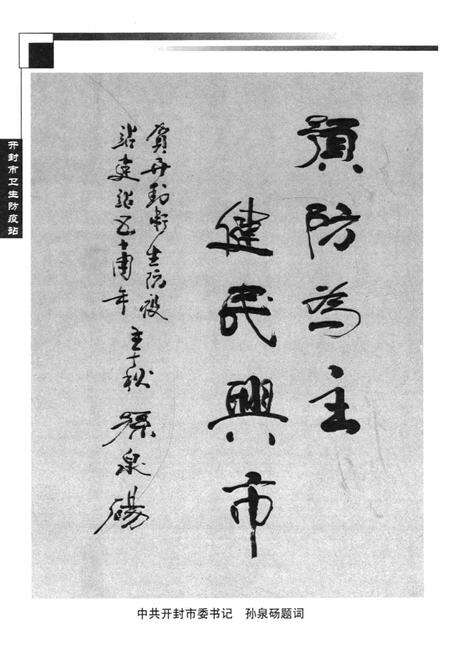 开封市卫生防疫站
預防為主
健民興市
賀开封衛生防疫
站建站五十周年 壬午秋 孫泉碭
中共开封市委书记 孙泉砀题词